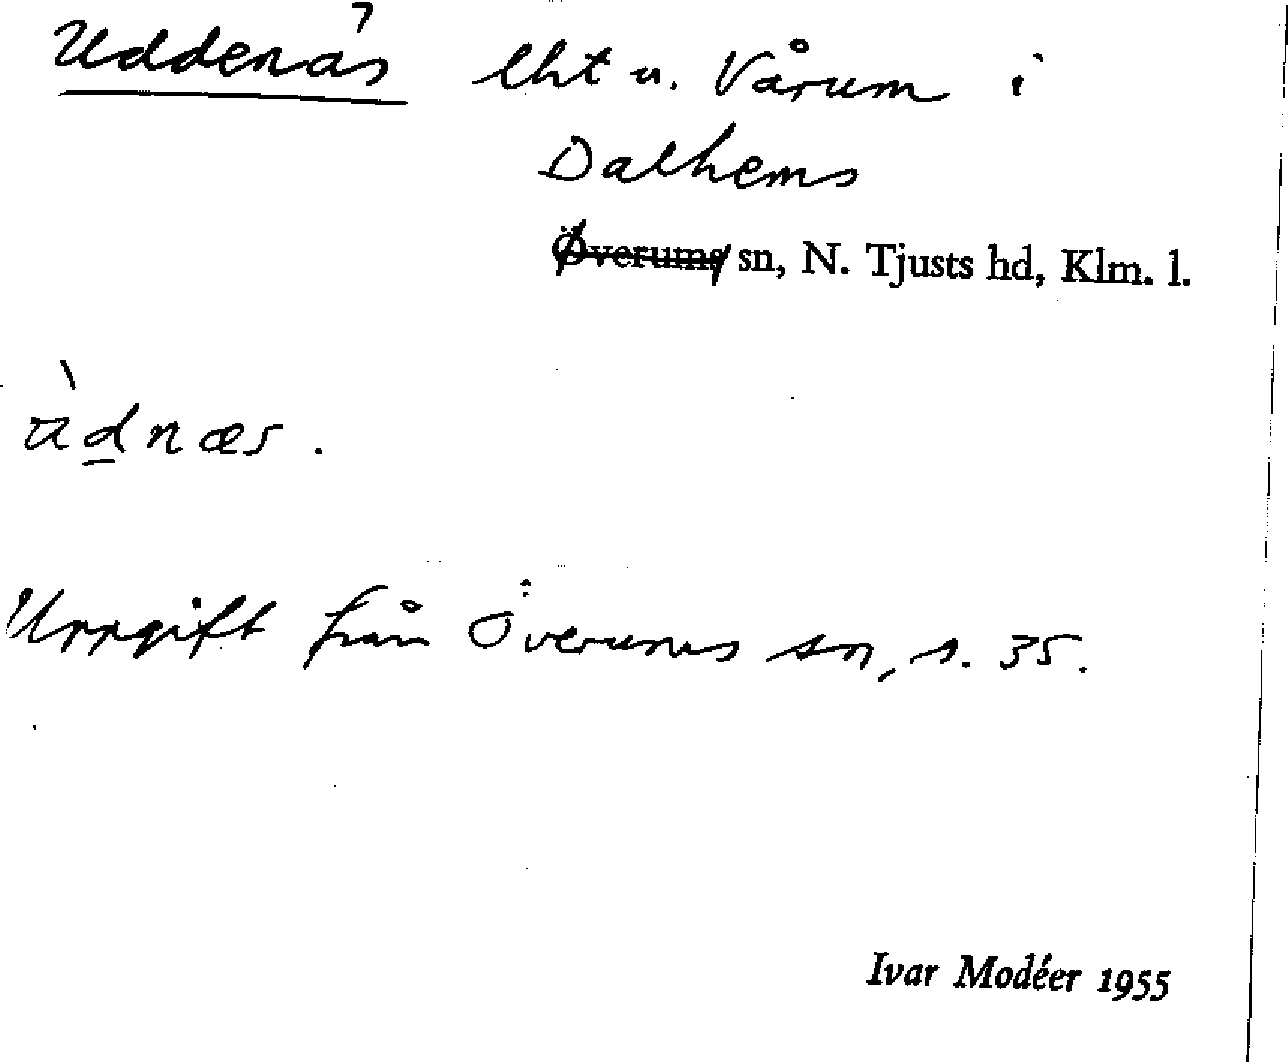 Uddenäs lht u. Vårum i
Dalhems
Överums sn, N. Tjusts hd, Klm. l.
ùdnæs.
Uppgift från Överums sn, s. 35.
Ivar Modéer 1955